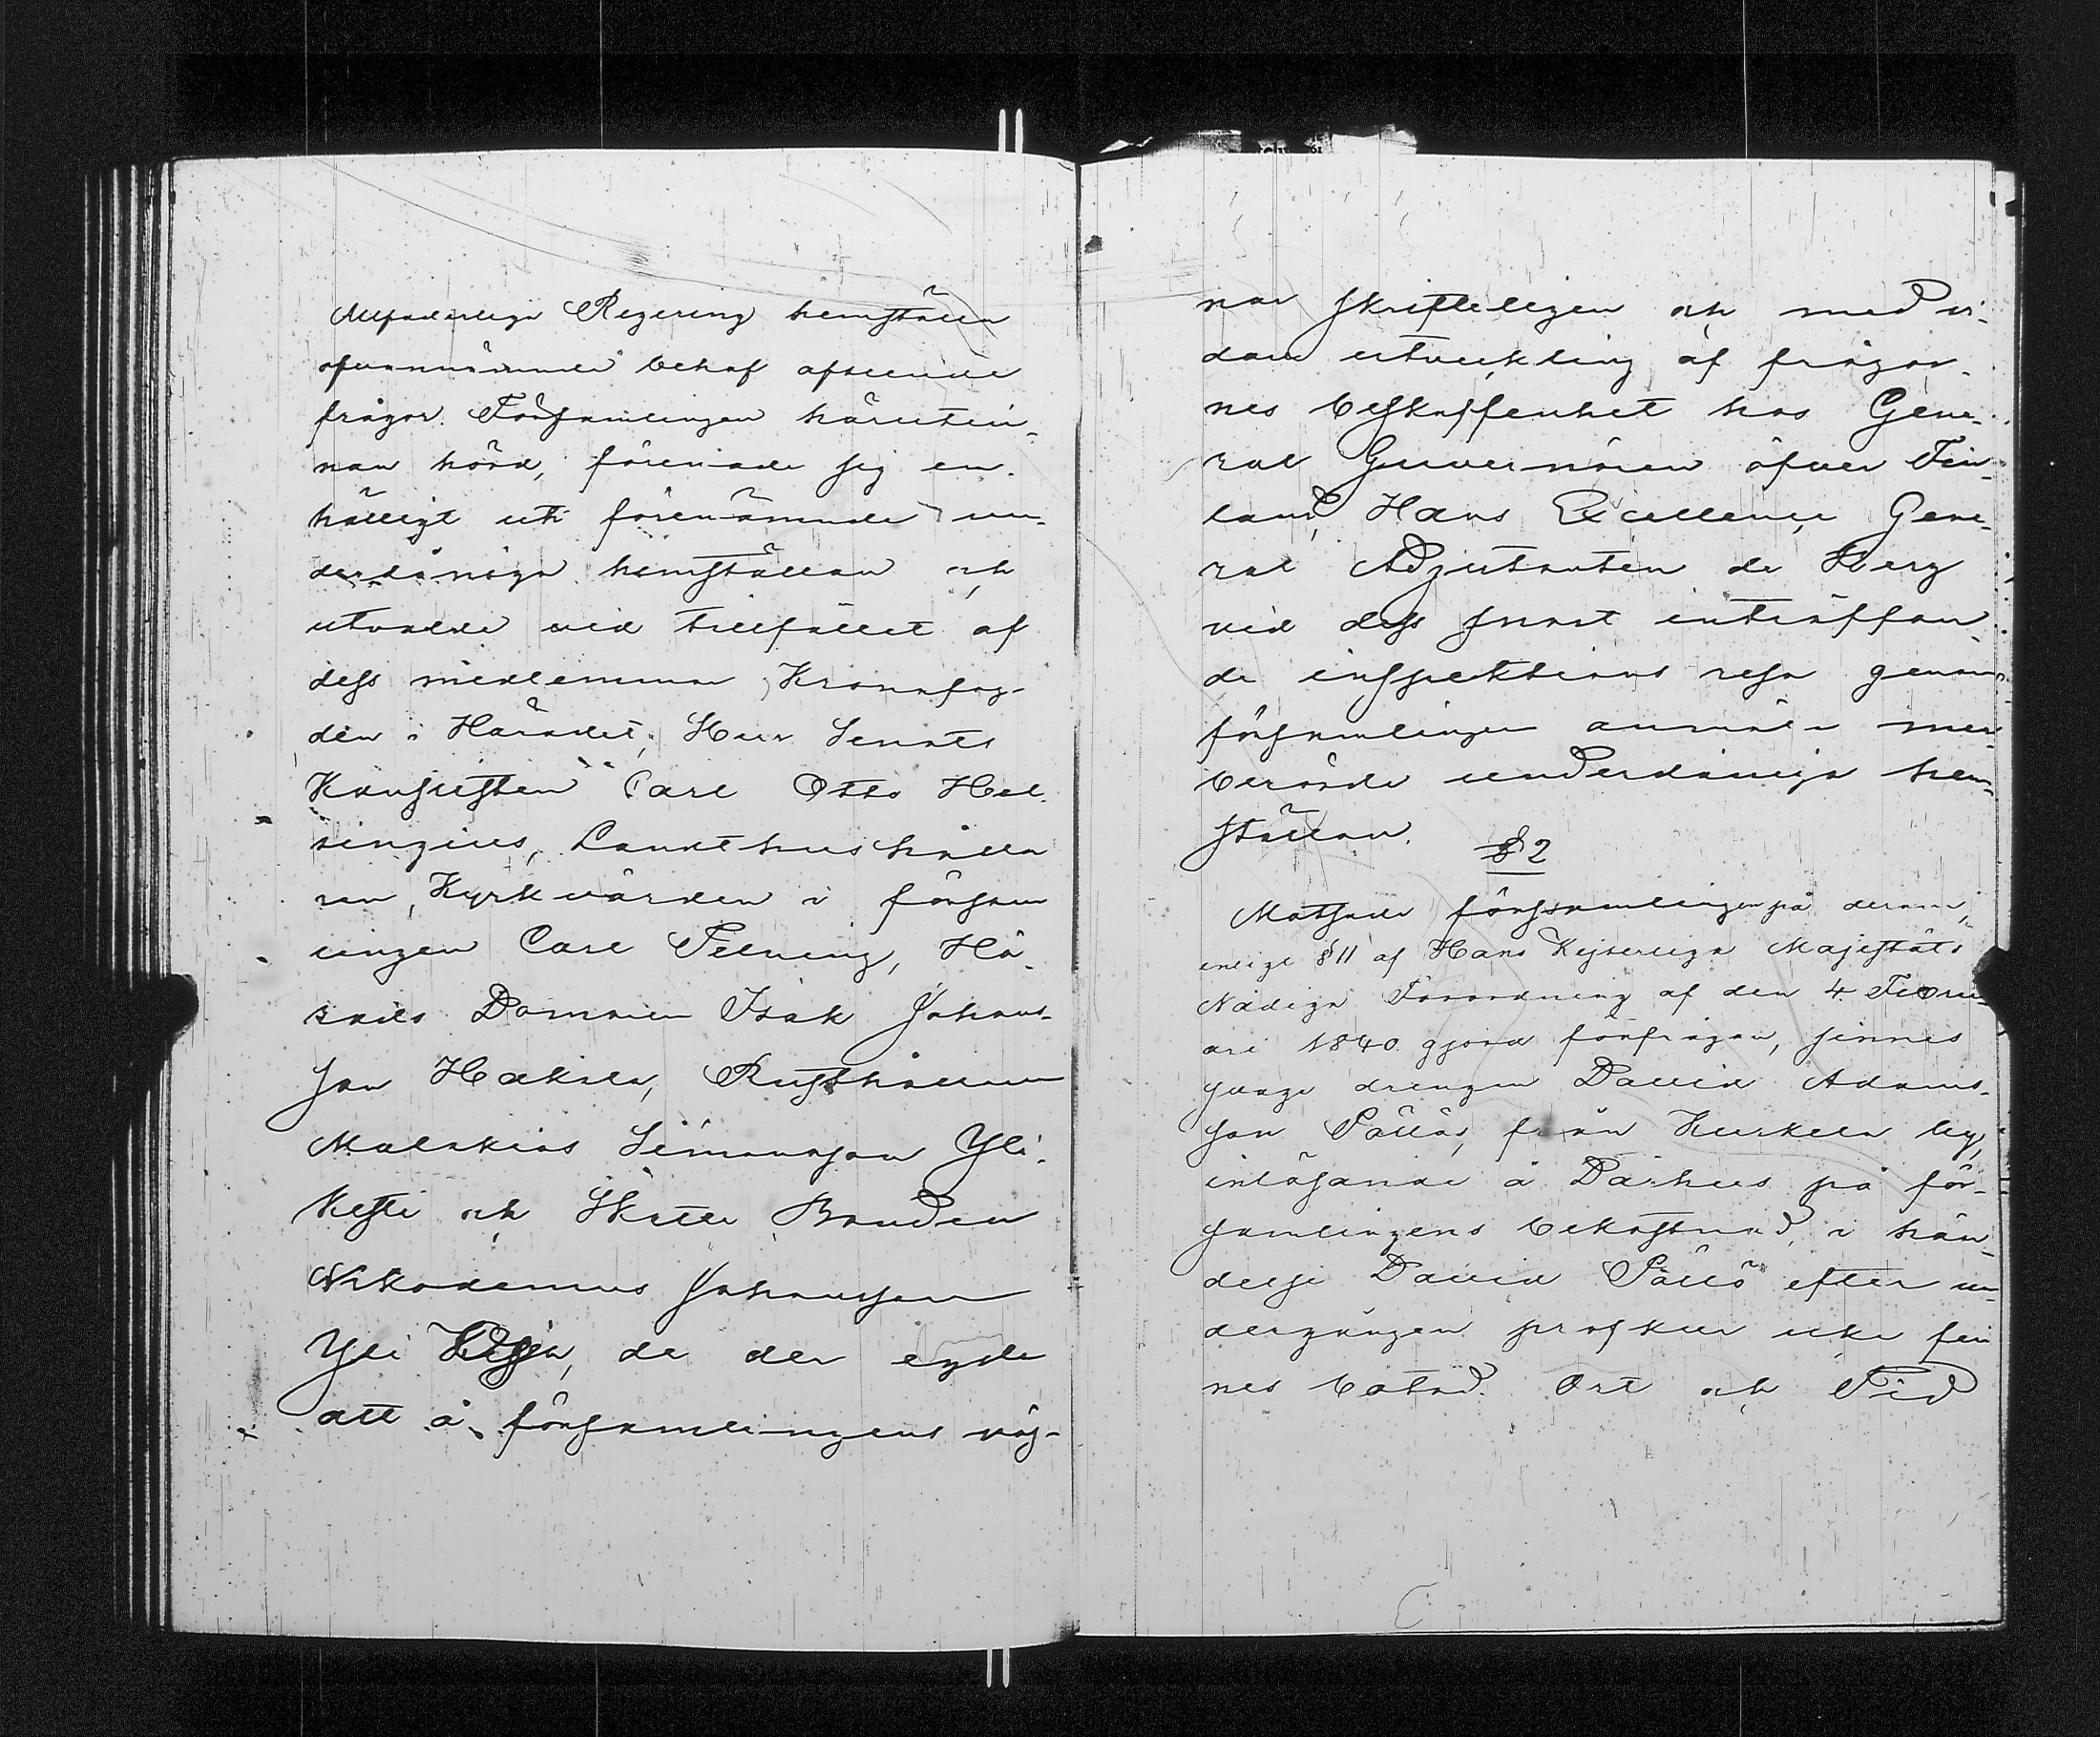 Milfaderliga Regering hemställa
ofvannämnde behof afseende
frågor. Församlingen härutin-
nan hörd, förenade sig en-
hälligt uti förenämnde un-
derdåniga hemställan och
utvalde vid tillfället af
dess medlemmar, Kronofog-
den i Häradet, Herr Senats
Kanslisten Carl Otto Hel-
singius, Landthushålla
ren, Kyrkvärden i försam
lingen Carl Pelving, Hä-
rads Domaren Isak Johans-
son Hakala, Rusthållaren
Malakias Simonsson Yli-
Kesti och Skatte Bonden
Nikodemus Johansson
Yli, de der egde
att å församlingens väg-
nar skrifteligen och med vi-
dare utveckling af frågor-
nes beskaffenhet hos Gene-
ral Guvernören öfver Fin-
land, Hans Excellence Gene-
ral Adjutanten de Berg
vid dess snart inträffan-
de inspektions resa genom
församlingen anmäla mer-
berörde underdåniga hem-
ställan.
§ 2
Mötsade församlingen på derom,
enligt § 11 af Hans Kejserliga Majestäts
Nådiga Förordning af den 4 Febru-
ari 1840 gjord förfrågan, sinnes
svage drengen David Adams-
son Pällö, från Kurkela by,
inlösande å Dårhus på för-
samlingens bekostnad, i hän-
delse David Pällö efter un-
dergången profkur icke fin
nes botad. Ort och Tid